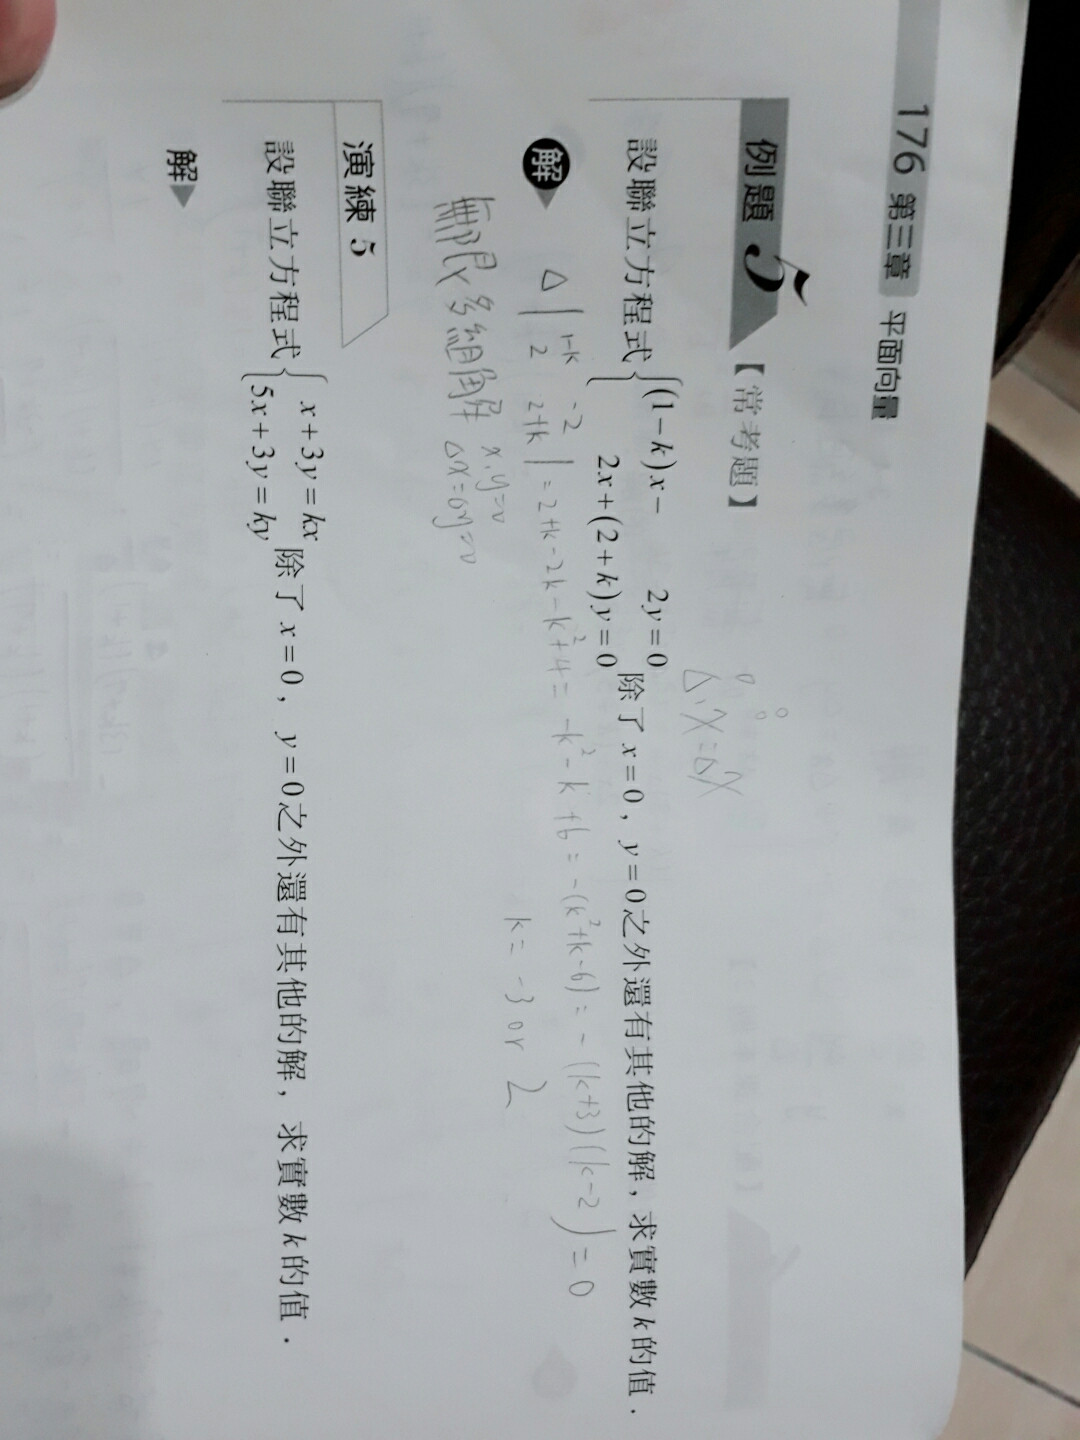 176 第三章 平面向量
例題 5 【常考題】
△·x=△x
設聯立方程式{(1-k)x-2y=0
2x+(2+k)y=0 除了x=0,y=0之外還有其他的解,求實數k的值.
解 △|1-k -2
2 2+k|=2+k-2k-k²+4=-k²-k+6=-(k²+k-6)=-(k+3)(k-2)=0
k=-3 or 2
無限多組解 x,y=0
△x=△y=0
演練 5
設聯立方程式{x+3y=kx
5x+3y=ky 除了x=0,y=0之外還有其他的解,求實數k的值.
解